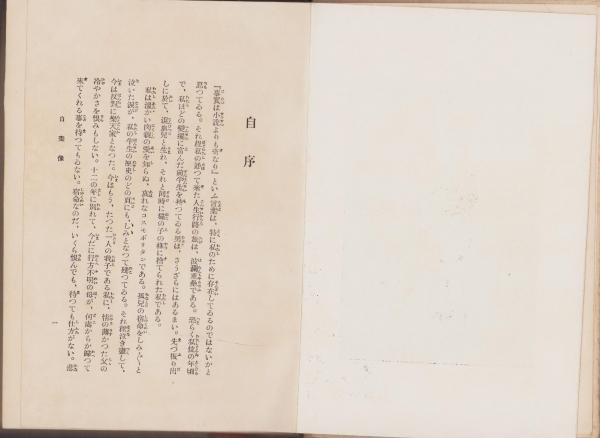 自序
『事實は小說よりも奇なり』といふ言葉は、特に私のために存在してゐるのではないかと
思つてゐる。それ程私の辿つて來た人生行路の旅は、波瀾重疊である。恐らく私位の年頃
で、私ほどの變轉に富んだ前半生を持つてゐる男は、さうざらにはあるまい。先づ振り出
しに於て、混血兒と生れ、それと同時に猫の子の樣に捨てられた私である。
私は溫かい肉親の愛を知らぬ、哀れなコスモポリタンである。孤兒の宿命をしみじみと
泣いた淚が、私の半生の歷史のどの頁にも、しみとなつて殘つてゐる。それ程泣き蟲して、
今は反對に樂天家となつた。今はもう、たつた一人の我子である私に、情の薄かつた父の
冷やかさを恨みもしない。十二の年に別れて、今だに行方不明の母が、何處からか歸つて
來てくれる事を待つてもゐない。宿命なのだ、いくら恨んでも、待つても仕方がない。悲
自畫像
一